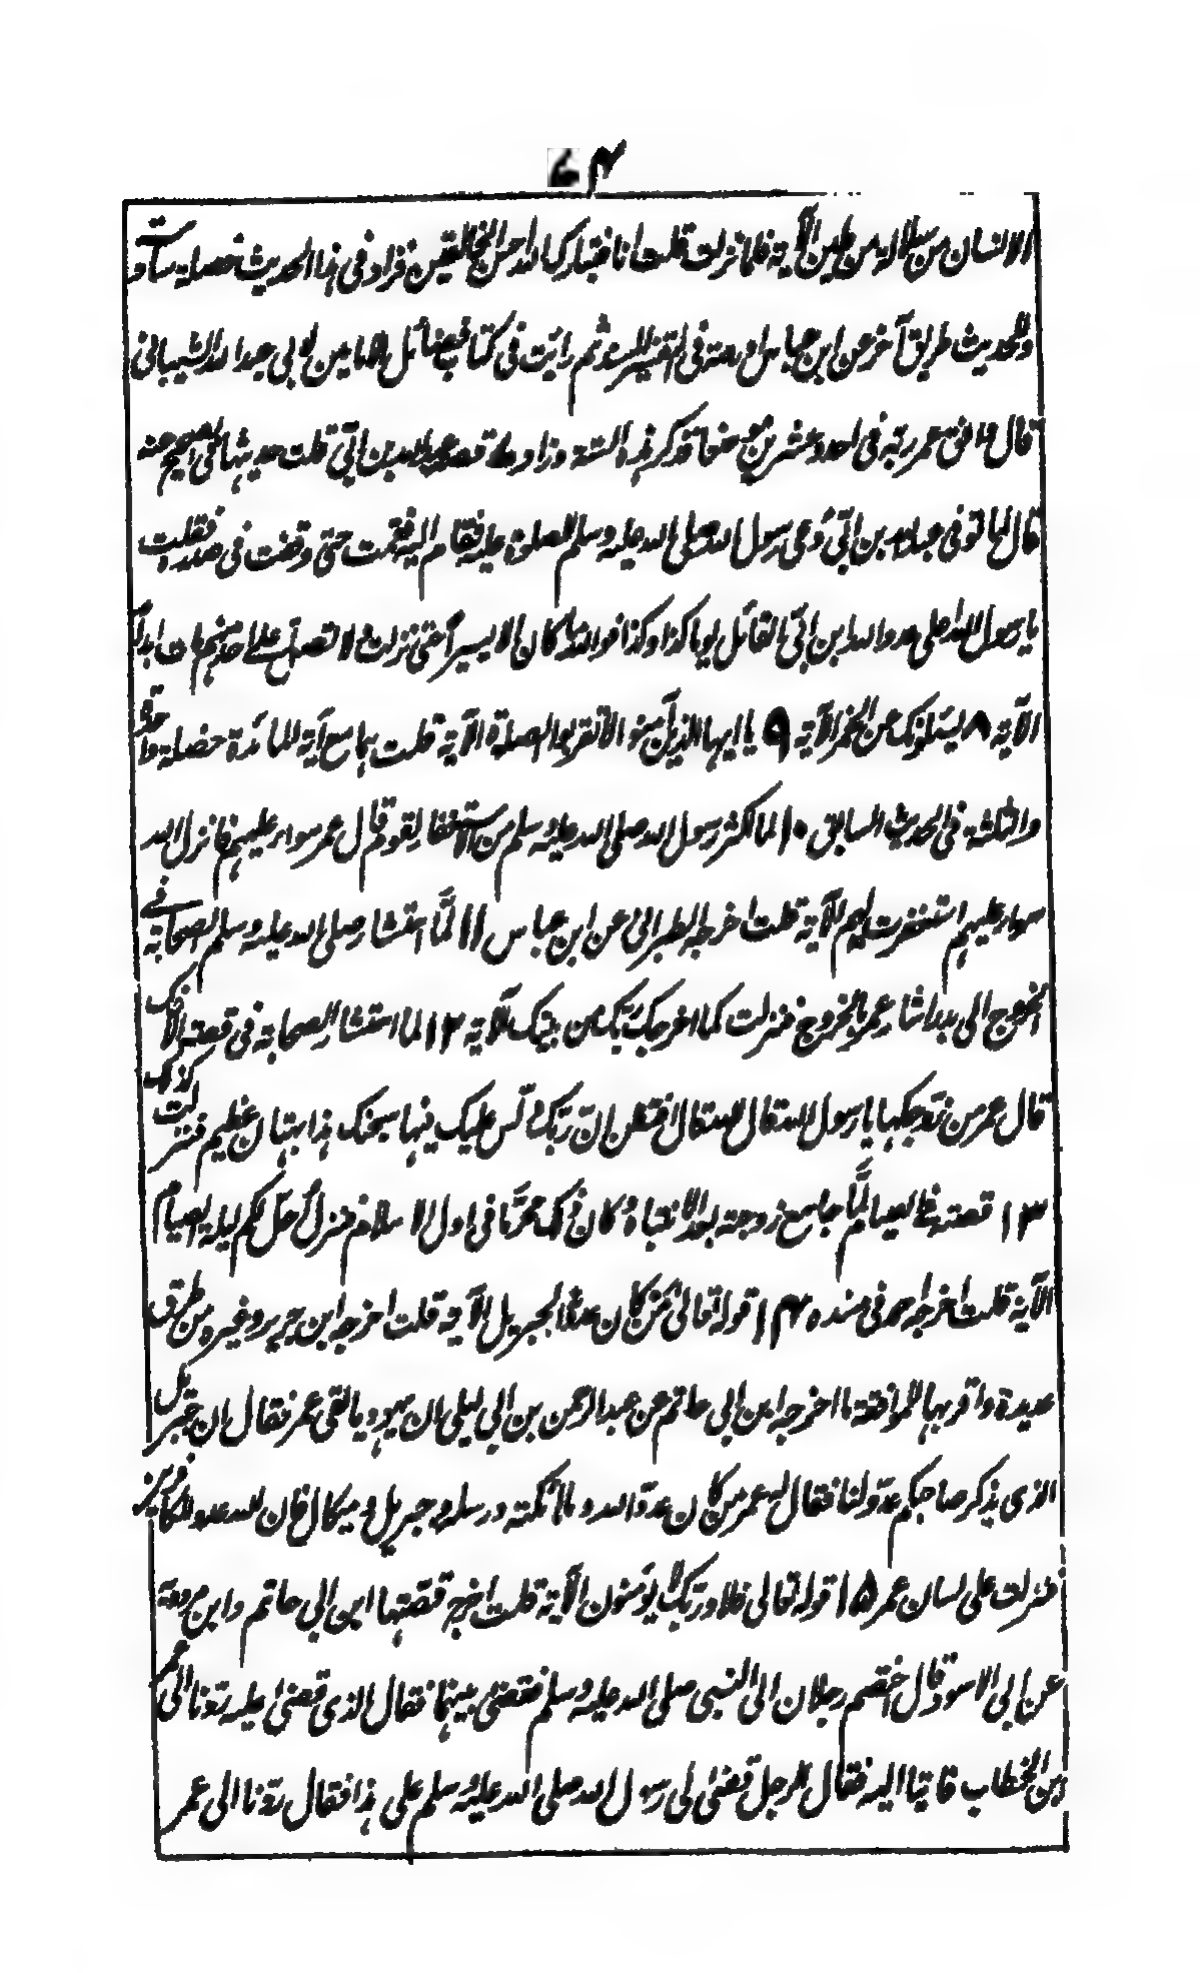 الانسان من سلالة من طين الآية فلما نزلت قلت انا فتبارك الله احسن الخالقين فزاد في هذا الحديث خصلة سادسة
وللحديث طريق آخر عن ابن عباس اوردته في التفسير المسند ثم رأيت في كتاب فضائل الامامين لابي عبد الله الشيباني
قال وافق عمر ربه في احد وعشرين موضعا فذكر هذه الستة وزاد قصة عبد الله بن ابي قلت حديثها في الصحيح عنه
قال لما توفي عبد الله بن ابي دعي رسول الله صلى الله عليه وسلم للصلوة عليه فقام اليه فقمت حتى وقفت في صدره فقلت
يا رسول الله اعلى عدو الله ابن ابي القائل يوما كذا وكذا فوالله ما كان الا يسيرا حتى نزلت ولا تصل على احد منهم مات ابدا
الآية ٨ يسئلونك عن الخمر الآية ٩ يا ايها الذين آمنوا لا تقربوا الصلوة الآية قلت هما مع آية المائدة خصلة واحدة
والثلثة في الحديث السابق ١٠ لما اكثر رسول الله صلى الله عليه وسلم من الاستغفار لقوم قال عمر سواء عليهم فانزل الله
سواء عليهم استغفرت لهم الآية قلت اخرجه الطبراني عن ابن عباس ١١ لمّا استشار صلى الله عليه وسلم الصحابة في
الخروج الى بدر اشار عمر بالخروج فنزلت كما اخرجك ربك من بيتك الآية ١٢ لما استشار الصحابة في قصة الافك
قال عمر من زوجكها يا رسول الله قال الله قال افتظن ان ربك دلس عليك فيها سبحنك هذا بهتان عظيم فنزلت كذلك
١٣ قصته في الصيام لمّا جامع زوجته بعد الانتباه وكان ذلك محرّما في اول الاسلام فنزل احل لكم ليلة الصيام
الآية قلت اخرجه احمد في مسنده ١٤ قوله تعالى من كان عدوا لجبريل الآية قلت اخرجه ابن جرير وغيره من طرق
عديدة واقربها للموافقة ما اخرجه ابن ابي حاتم عن عبد الرحمن بن ابي ليلى ان يهوديا لقي عمر فقال ان جبريل
الذي يذكر صاحبكم عدو لنا فقال له عمر من كان عدوّا لله وملائكته ورسله وجبريل وميكال فان الله عدو للكافرين
فنزلت على لسان عمر ١٥ قوله تعالى فلا وربك لا يؤمنون الآية قلت اخرج قصتها ابن ابي حاتم وابن مردويه
عن ابي الاسود قال اختصم رجلان الى النبي صلى الله عليه وسلم فقضى بينهما فقال الذي قضى عليه ردّنا الى عمر
بن الخطاب فاتيا اليه فقال الرجل قضى لي رسول الله صلى الله عليه وسلم على هذا فقال ردّنا الى عمر